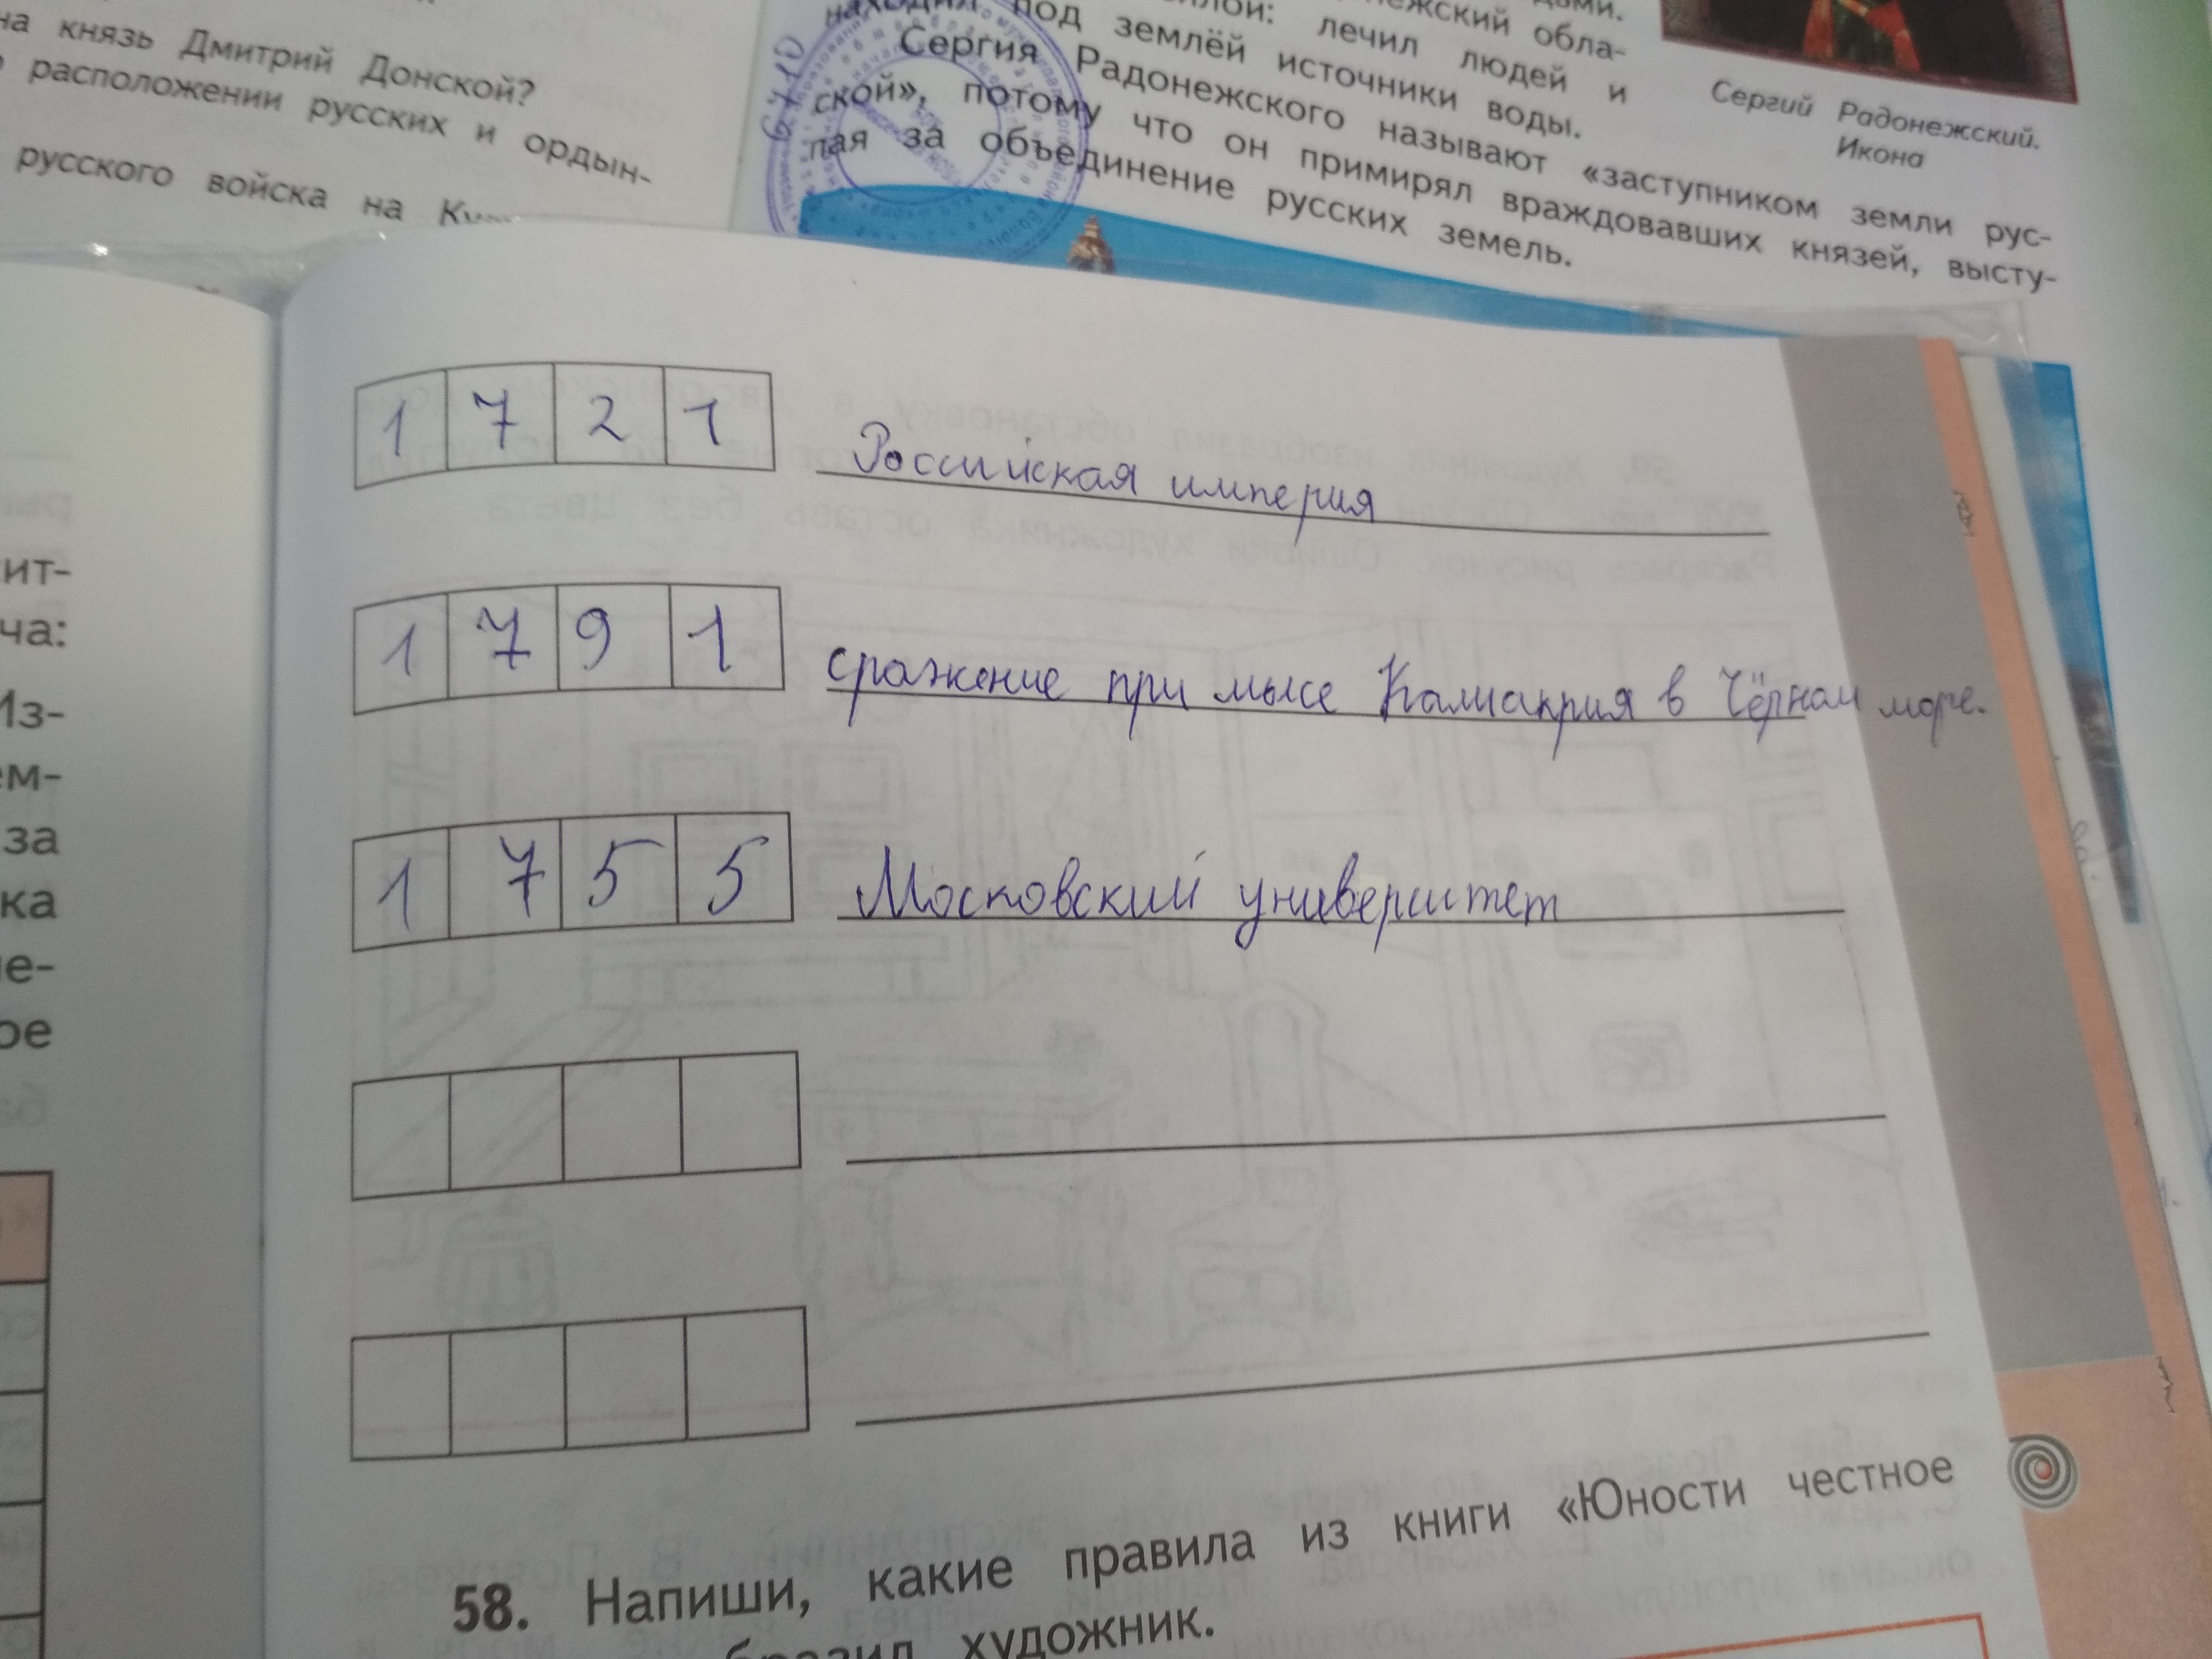 на князь Дмитрий Донской?
расположении русских и ордын-
русского войска на
дами.
нежский обла-
лой: лечил людей и
находил под землёй источники воды.
Сергия Радонежского называют «заступником земли рус-
ской», потому что он примирял враждовавших князей, высту-
пая за объединение русских земель.
Сергий Радонежский.
Икона
6410
ит-
ча:
Из-
ем-
за
ка
е-
ое
1721 Российская империя
1791 сражение при мысе Калиакрия в Чёрном море.
1755 Московский университет
58. Напиши, какие правила из книги «Юности честное
художник.